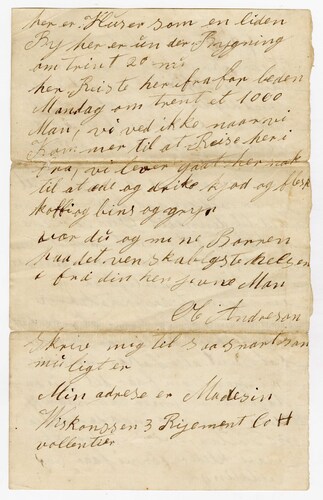 her er Huser som en liden
By her er un der Bygning
om trint 20
her Reiste her ifra for leden
Mandag om trent et 1000
Man, vi ved ikke naar vi
Kom mer til at Reise her i
fra, vi lever gaat her nok
til at æde og drike kjød og flesk
Kaffe og bins og
vær du og mine Barren
paa det ven skabligste helsen
i fra din hen givne Man
O Andreson
Skriv mig til saa snart som
muligt er
Min adrese er Madesin
Wiskonssen 3 Rijement Co H
vollentier